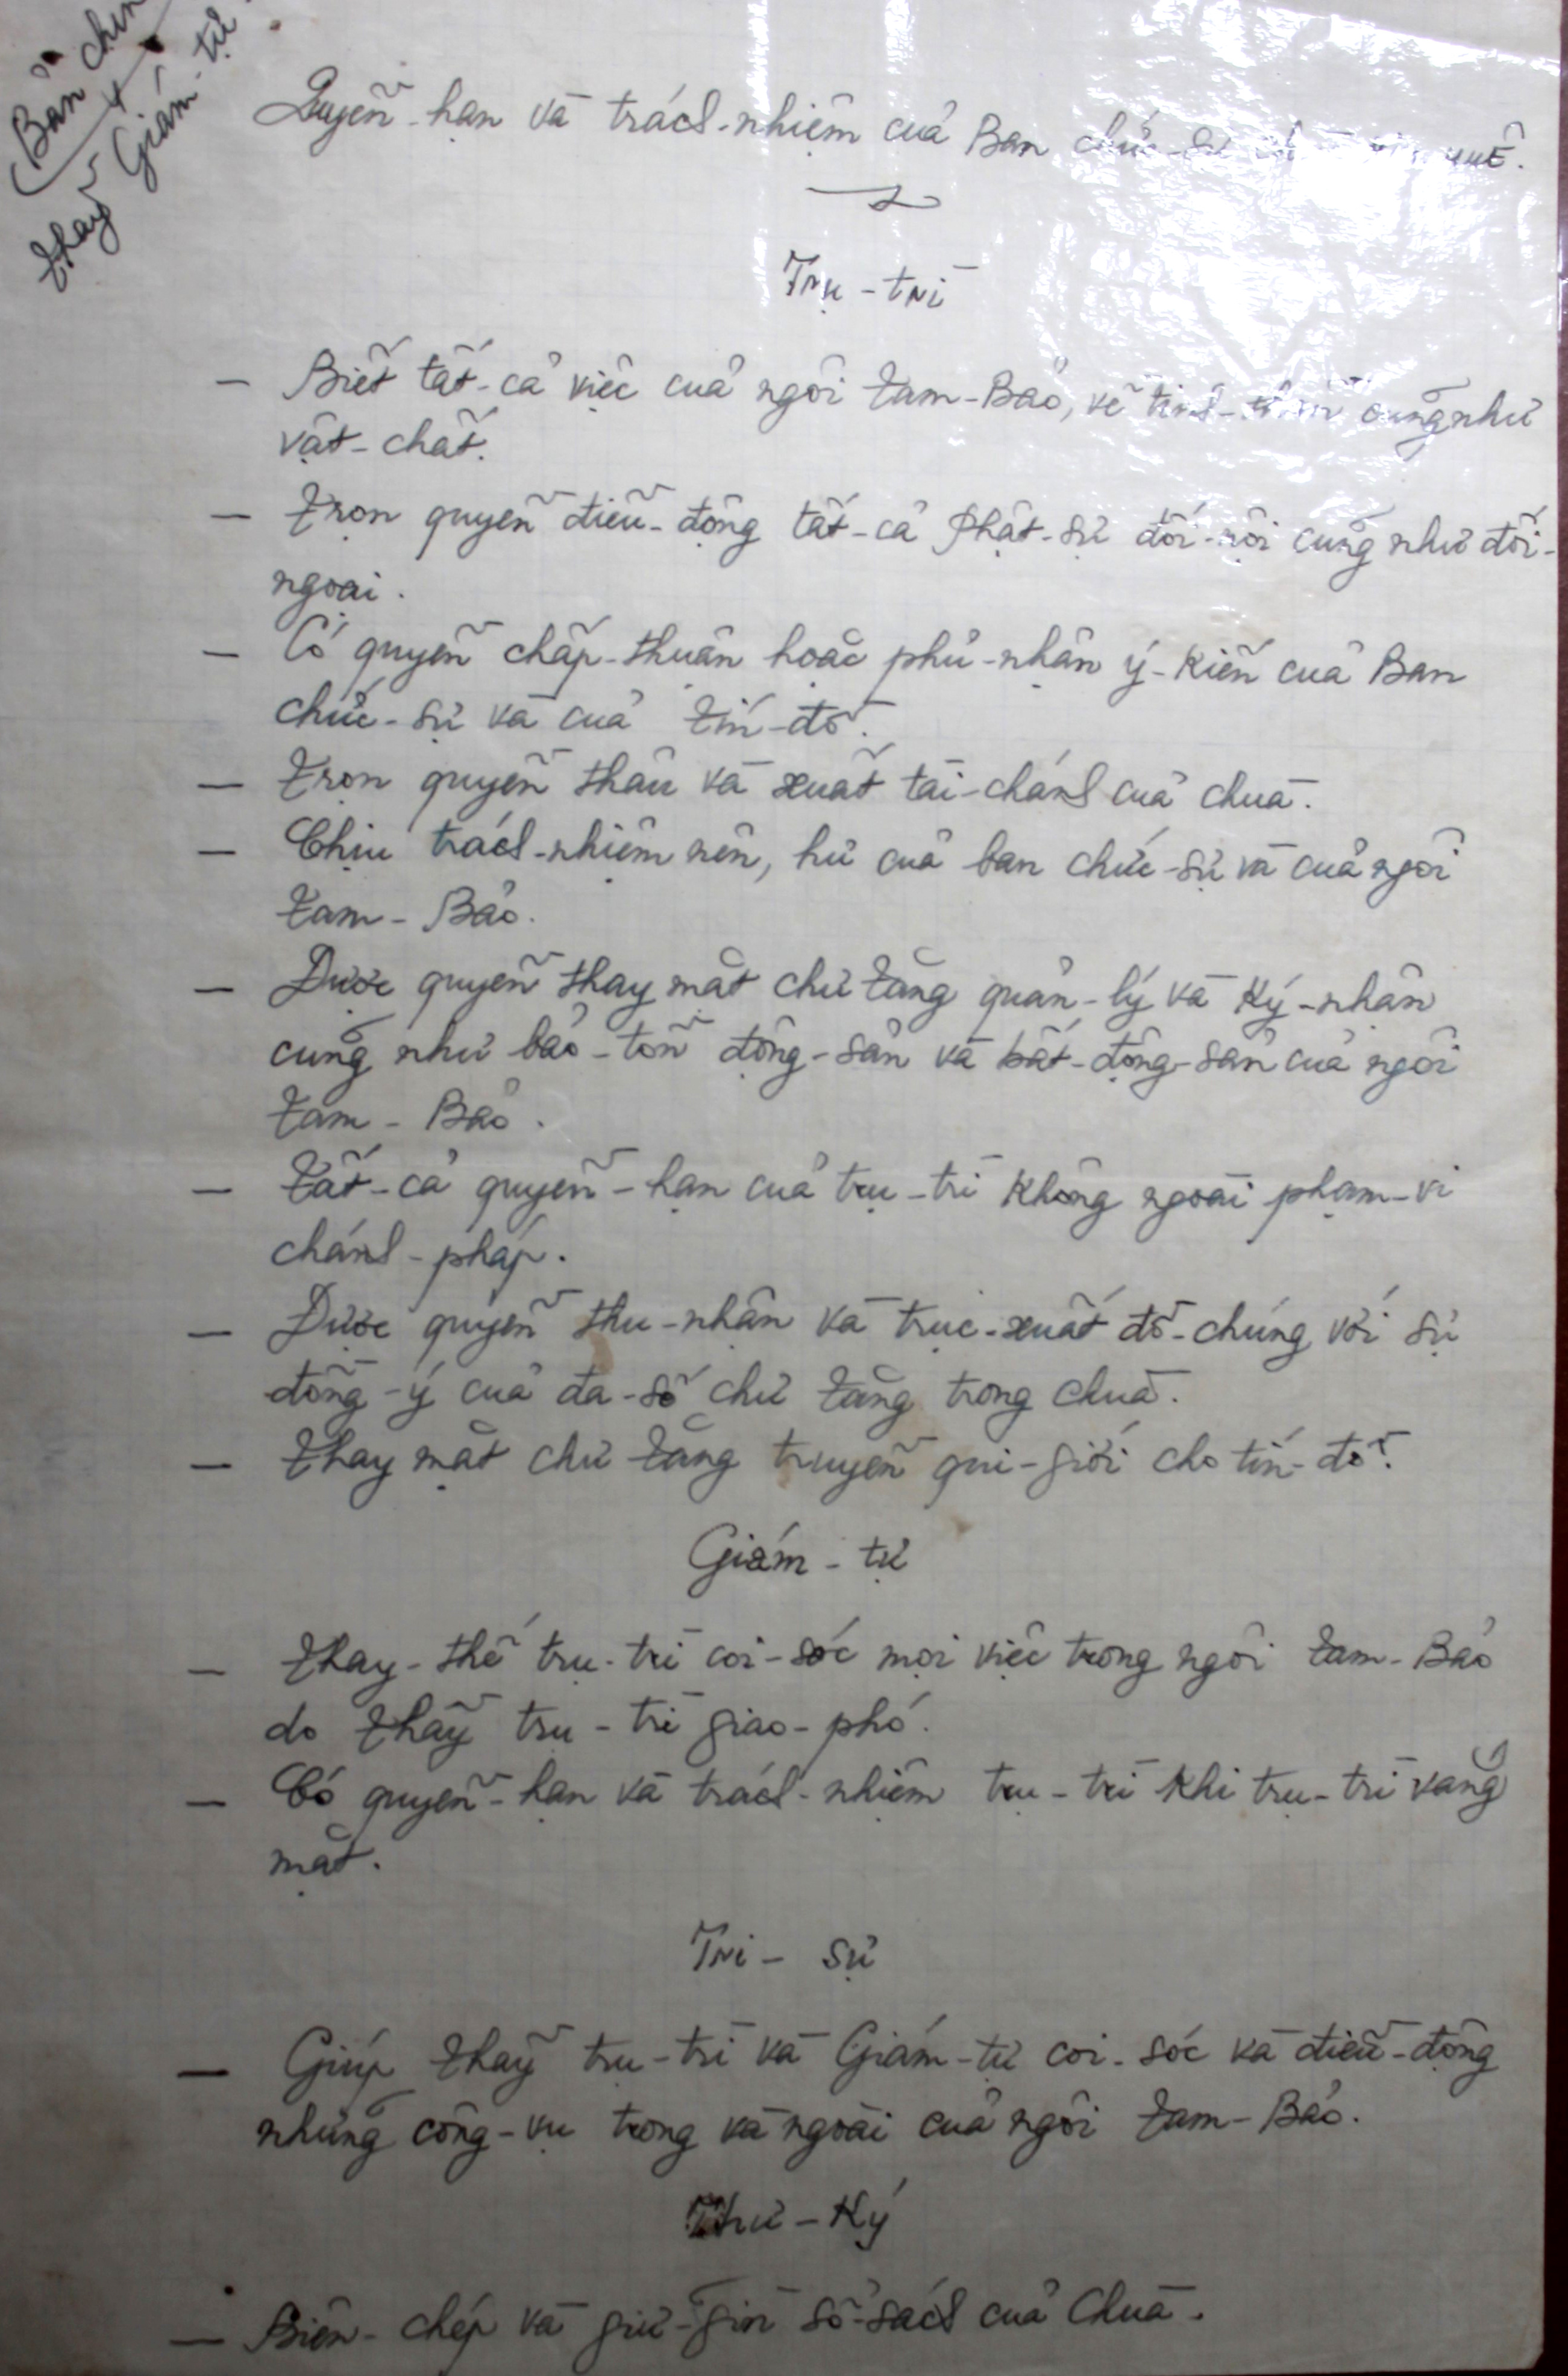 Bản chín
+
thầy Giám-tự
Quyền-hạn và trách-nhiệm của Ban chức-sự
Trụ-trì
— Biết tất-cả việc của ngôi Tam-Bảo, về tinh-thần cũng như
vật-chất.
— Trọn quyền điều-động tất-cả Phật-sự đối-nội cũng như đối-
ngoại.
— Có quyền chấp-thuận hoặc phủ-nhận ý-kiến của Ban
chức-sự và của Tín-đồ.
— Trọn quyền thâu và xuất tài-chánh của chùa.
— Chịu trách-nhiệm nên, hư của ban chức-sự và của ngôi
Tam-Bảo.
— Được quyền thay mặt chư Tăng quản-lý và ký-nhận
cũng như bảo-tồn động-sản và bất-động-sản của ngôi
Tam-Bảo.
— Tất-cả quyền-hạn của trụ-trì không ngoài phạm-vi
chánh-pháp.
— Được quyền thu-nhận và trục-xuất đồ-chúng với sự
đồng-ý của đa-số chư Tăng trong chùa.
— Thay mặt chư Tăng truyền qui-giới cho tín-đồ.
Giám-tự
— Thay-thế trụ-trì coi-sóc mọi việc trong ngôi Tam-Bảo
do Thầy trụ-trì giao-phó.
— Có quyền-hạn và trách-nhiệm trụ-trì khi trụ-trì vắng
mặt.
Tri-sự
— Giúp Thầy trụ-trì và Giám-tự coi-sóc và điều-động
những công-vụ trong và ngoài của ngôi Tam-Bảo.
Thư-Ký
— Biên-chép và giữ-gìn sổ-sách của Chùa.